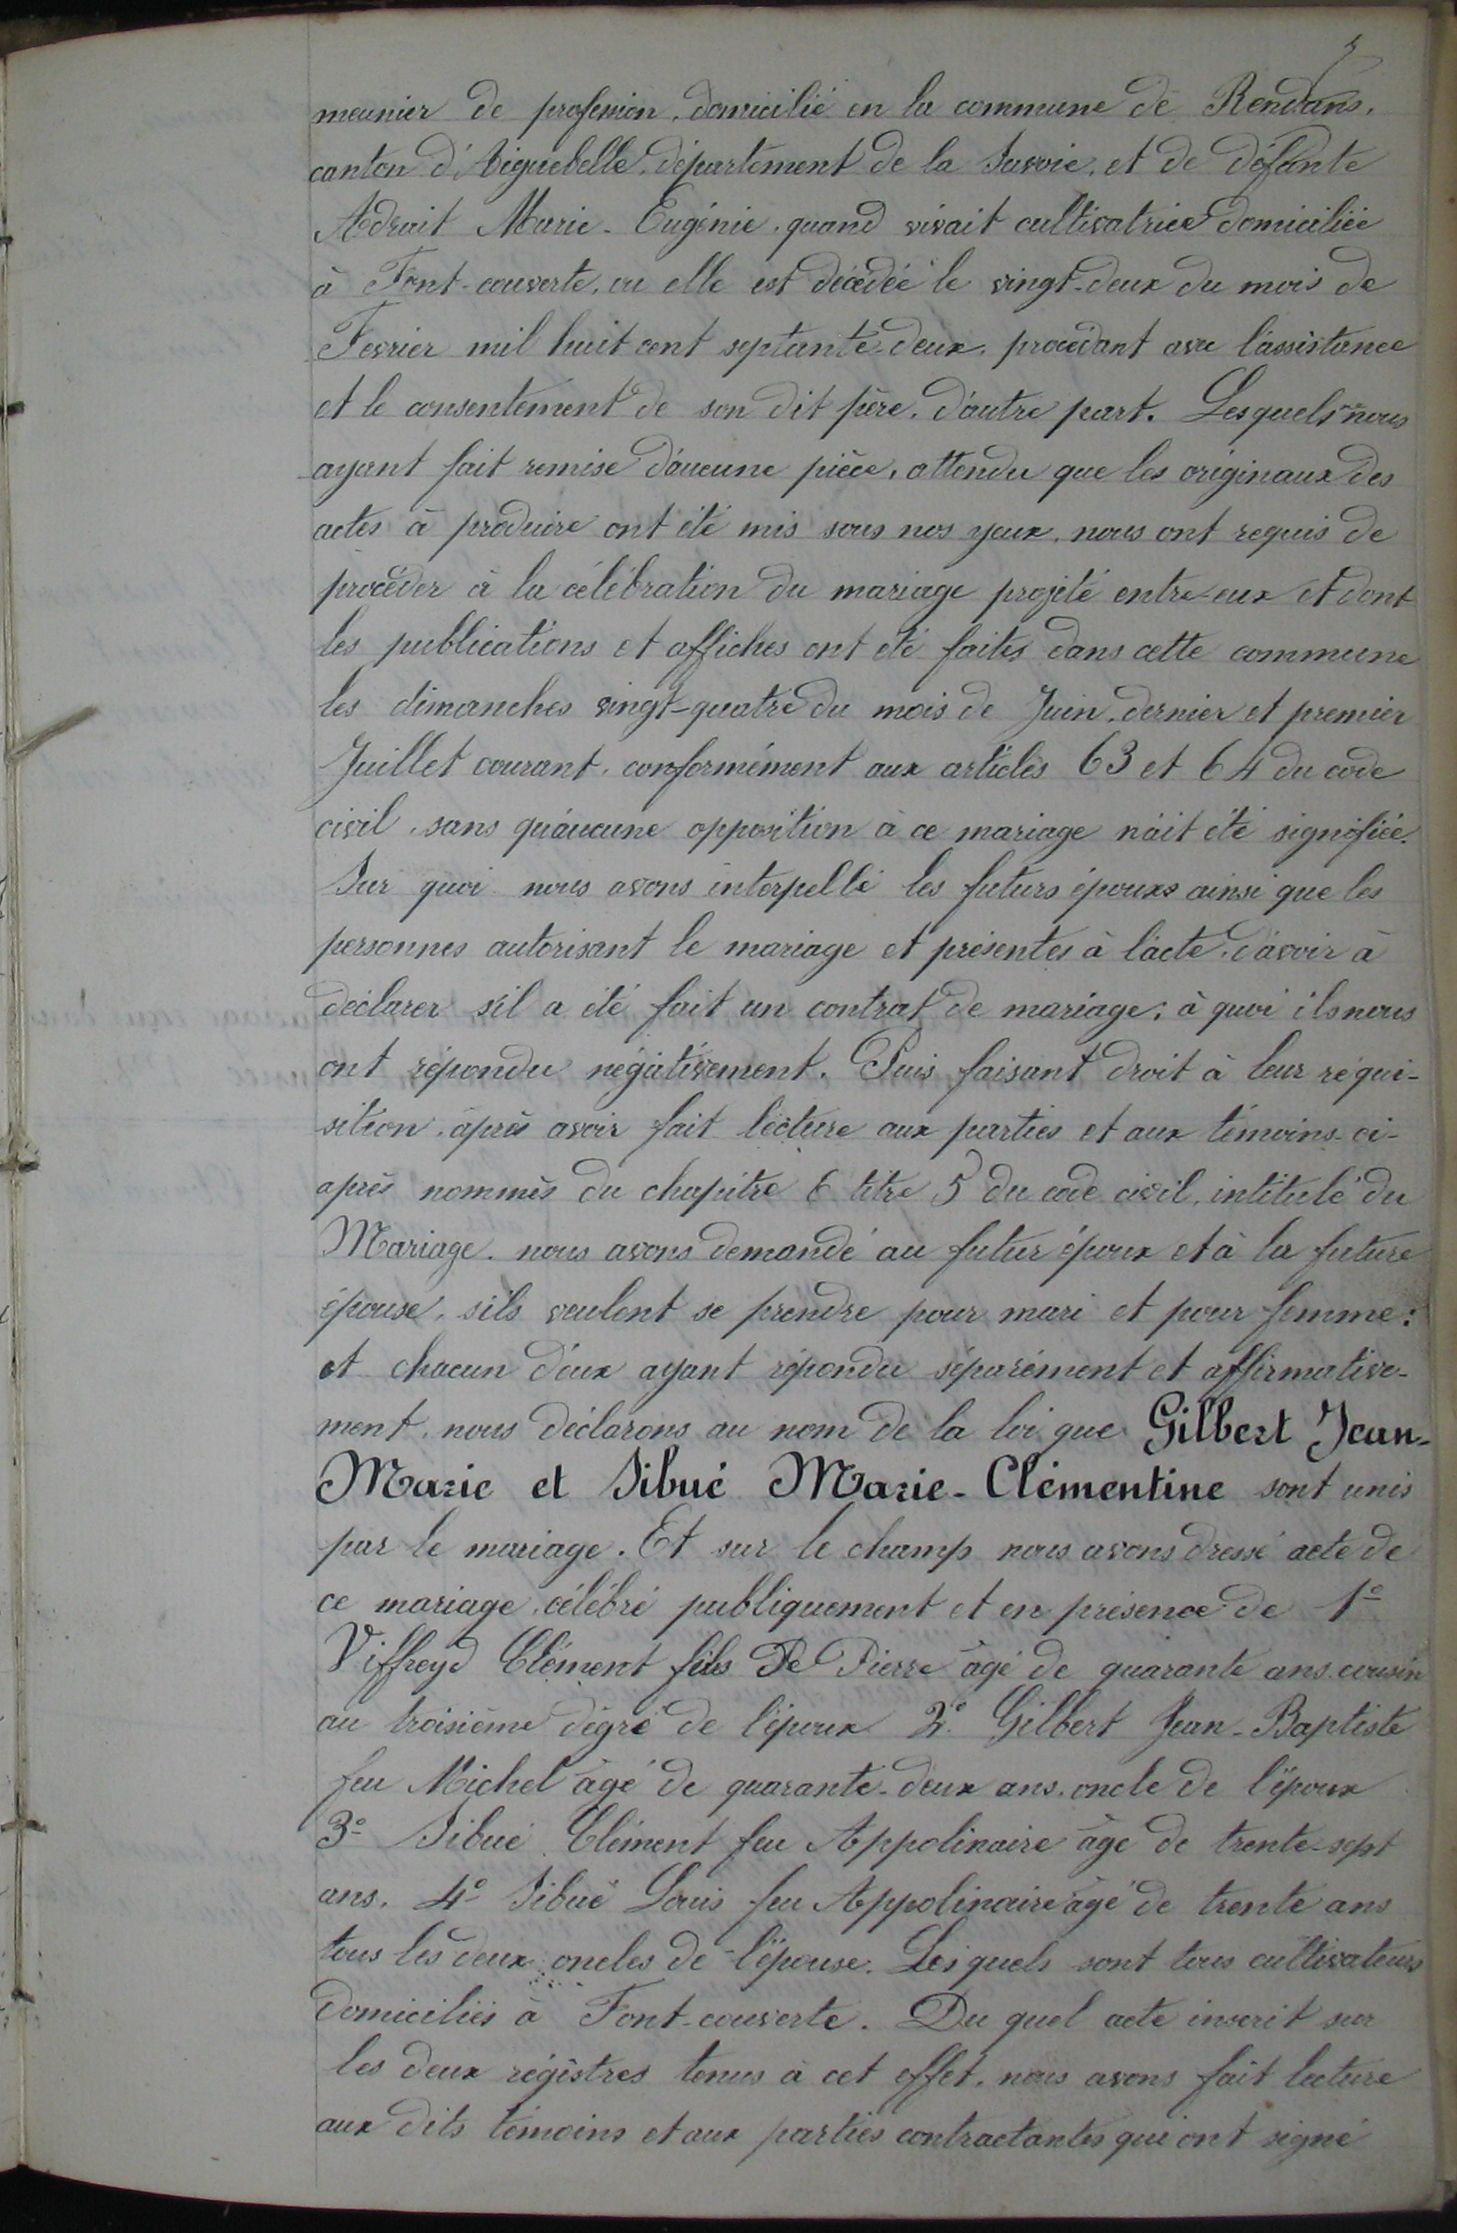 meunier de profession, domicilié en la commune de Rendans,
canton d'Aiguebelle, département de la Savoie, et de défunte
Adrait Marie-Eugénie, quand vivait cultivatrice domiciliée
à Font-couverte, ou elle est décédée le vingt-deux du mois de
Fevrier mil huit cent septante-deux, procédant avec l'assistance
et le consentement de son dit père, d'autre part. Lesquels nous
ayant fait remise d'aucune pièce, attendu que les originaux des
actes à produire ont été mis sous nos yeux, nous ont requis de
procéder à la célébration du mariage projeté entre eux et dont
les publications et affiches ont été faites dans cette commune
les dimanches vingt-quatre du mois de Juin, dernier et premier
Juillet courant, conformément aux articles 63 et 64 du code
civil, sans qu'aucune opposition à ce mariage n'ait été signifiée.
Sur quoi nous avons interpellé les futurs époux ainsi que les
personnes autorisant le mariage et présentes à l'acte, d'avoir à
déclarer s'il a été fait un contrat de mariage; à quoi ils nous
ont répondu négativement. Puis faisant droit à leur réqui-
sition, après avoir fait lecture aux parties et aux témoins ci-
après nommés du chapitre 6 titre 5 du code civil, intitulé du
Mariage, nous avons demandé au futur époux et à la future
épouse, s'ils veulent se prendre pour mari et pour femme:
et chacun d'eux ayant répondu séparément et affirmative-
ment, nous déclarons au nom de la loi que Gilbert Jean-
Marie et Sibué Marie-Clémentine sont unis
par le mariage. Et sur le champ nous avons dressé acte de
ce mariage, célébré publiquement et en présence de 1°
Viffreyd Clément fils de Pierre âgé de quarante ans cousin
au troisième dégré de l'époux 2° Gilbert Jean-Baptiste
feu Michel âgé de quarante-deux ans, oncle de l'époux
3° Sibué Clément feu Appolinaire âgé de trente-sept
ans, 4° Sibué Louis feu Appolinaire âgé de trente ans
tous les deux oncles de l'épouse. Lesquels sont tous cultivateurs
domiciliés à Font-couverte. Du quel acte inscrit sur
les deux régistres tenus à cet effet, nous avons fait lecture
aux dits témoins et aux parties contractantes qui ont signé